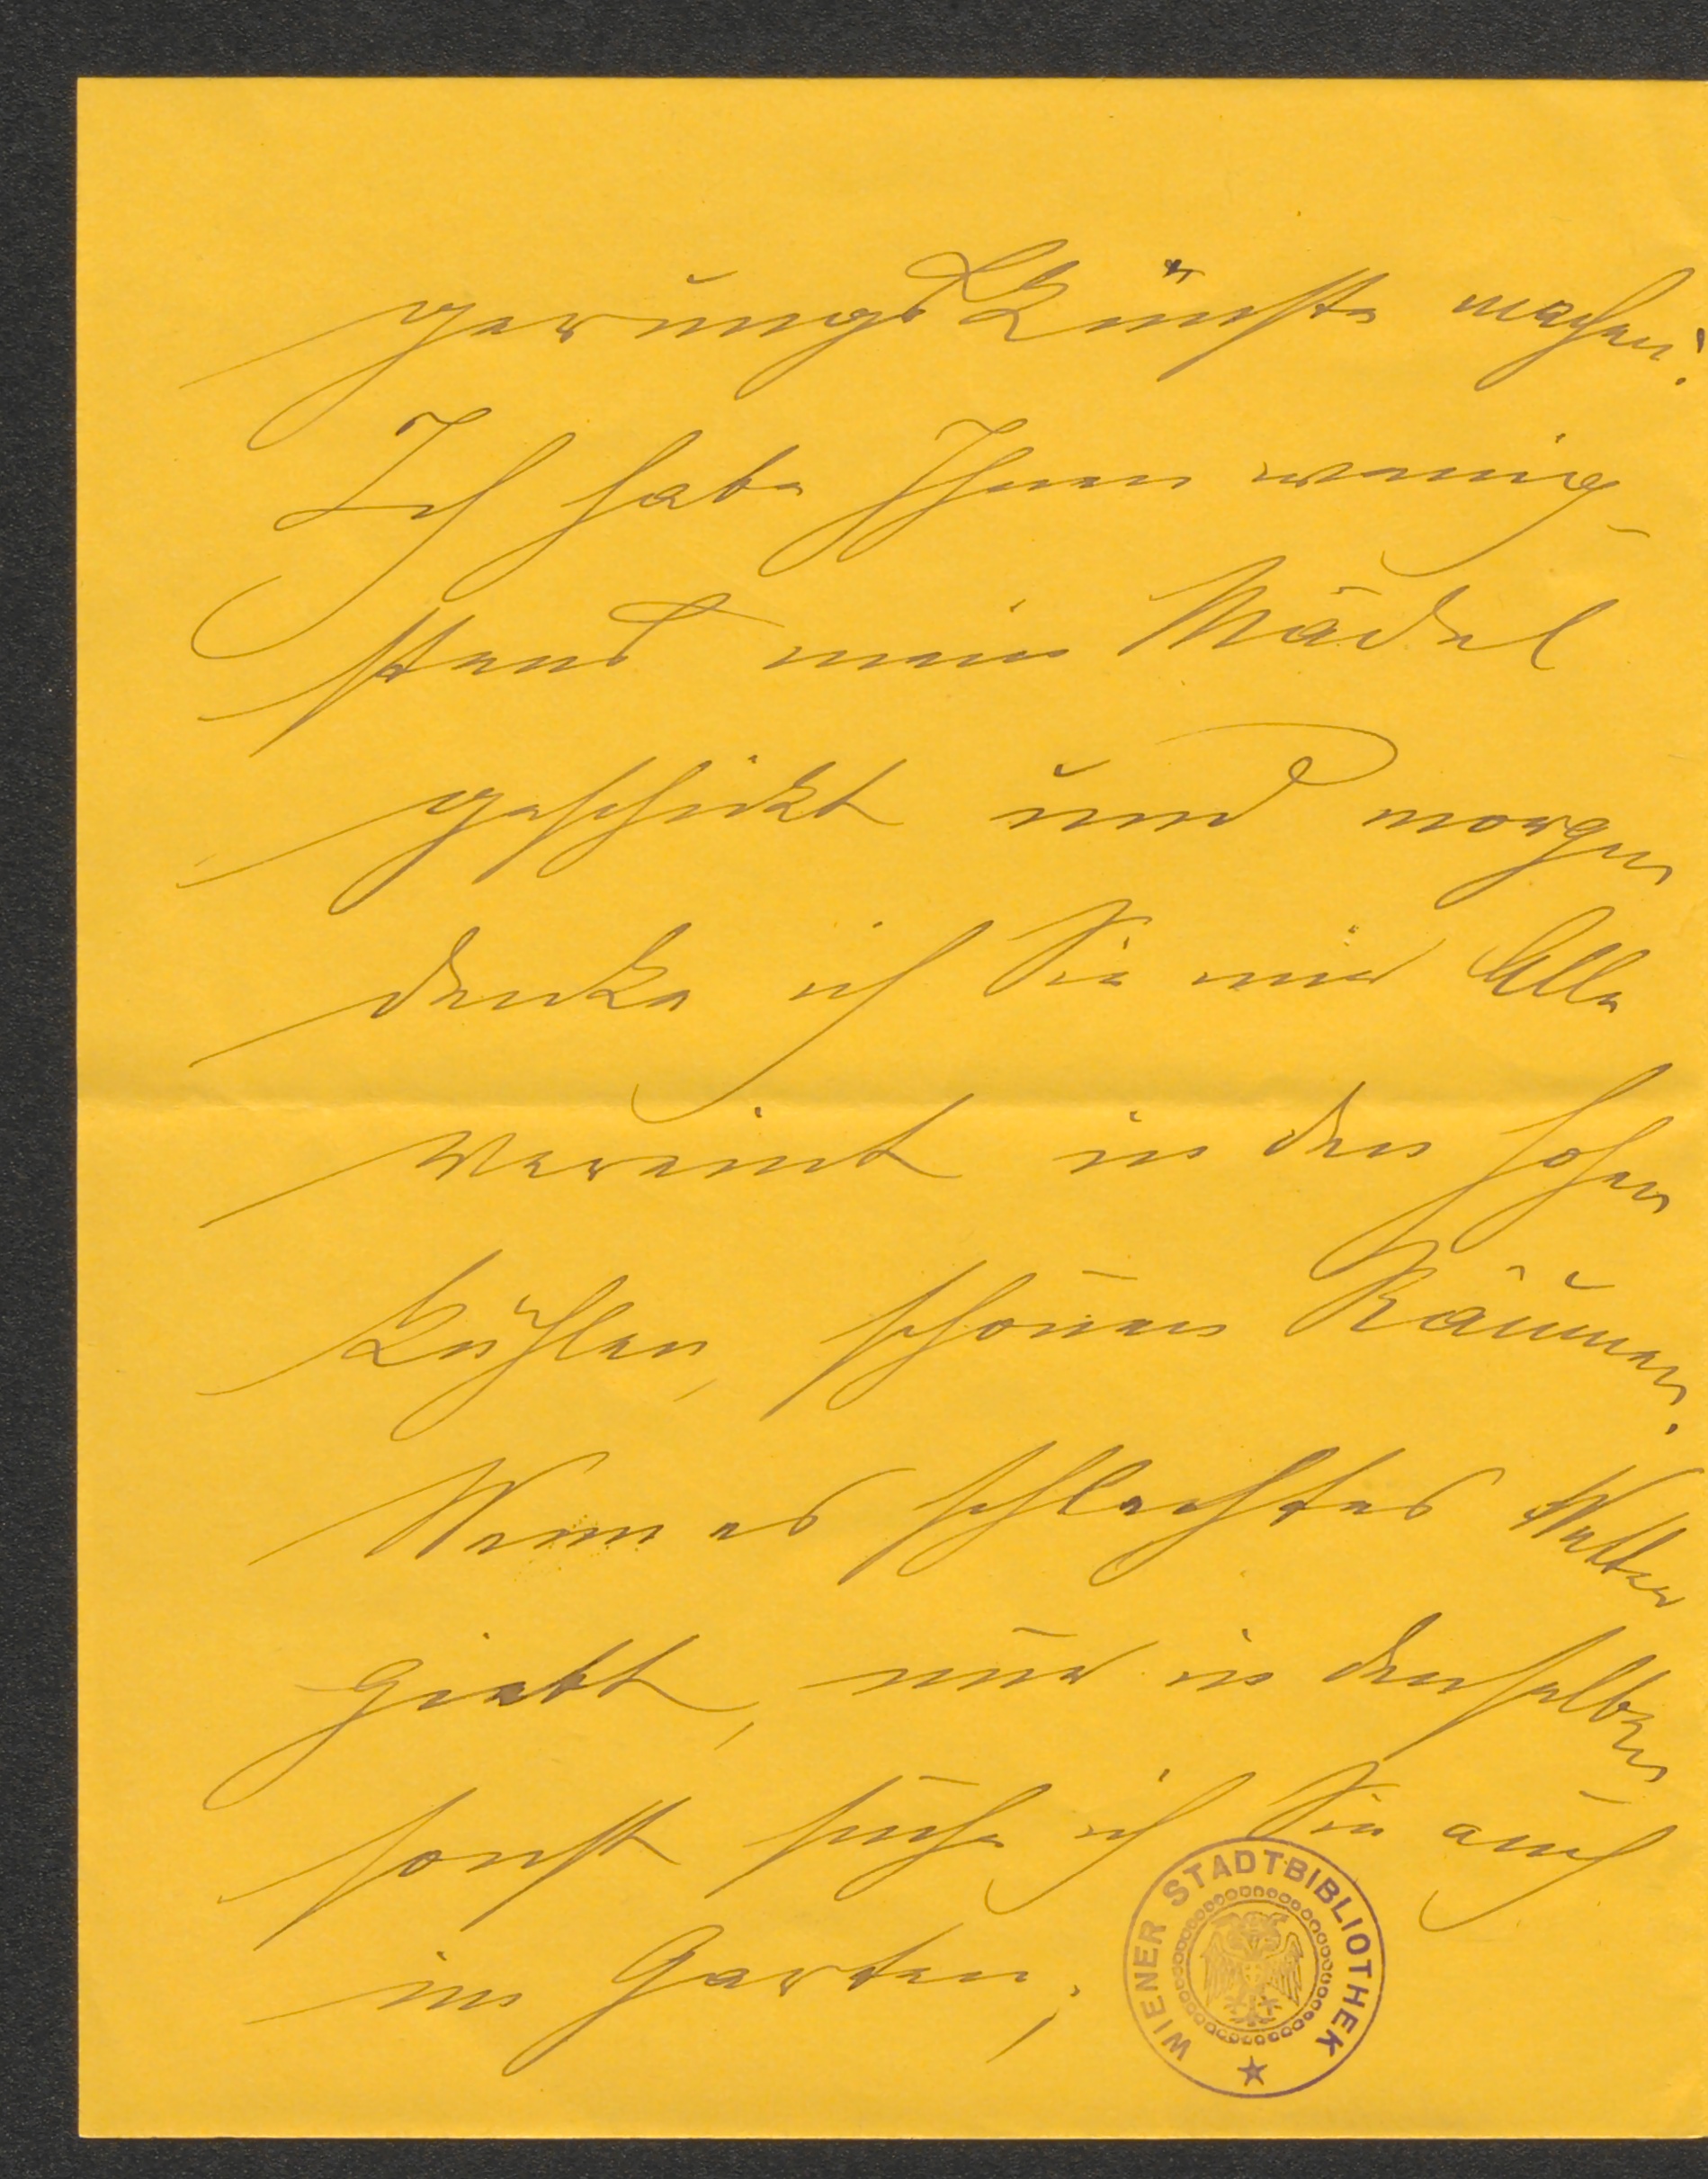 gerungs Künste machen!
Ich habe Ihnen wenig-
stens mein Mädel
geschickt und morgen
denke ich Sie mir Alle
vereint in den hohen
kühlen, schönen Räumen.
Wenn es schlechtes Wetter
giebt, nur in denselben
sonst suche ich Sie auch
im Garten;
WIENER STADTBIBLIOTHEK